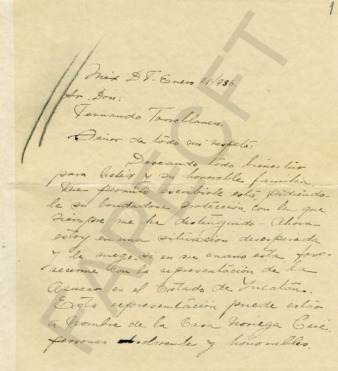 1
Méx D.F. Enero 21/936
Sr. Don:
Fernando Torreblanca
Señor de todo mi respeto.
Deseando todo bienestar
para Usted y su honorable familia.
Me permito escribirle esta pidiendo-
le su bondadosa protección con la que
siempre me ha distinguido. Ahora
estoy en una situación desesperada
y le ruego si en su mano esta, favo-
reserme con la representación de la
en el Estado de Yucatán.
Esta representación puede estar
a nombre de la Casa Noriega
personas solventes y honorables.
PAPECFT